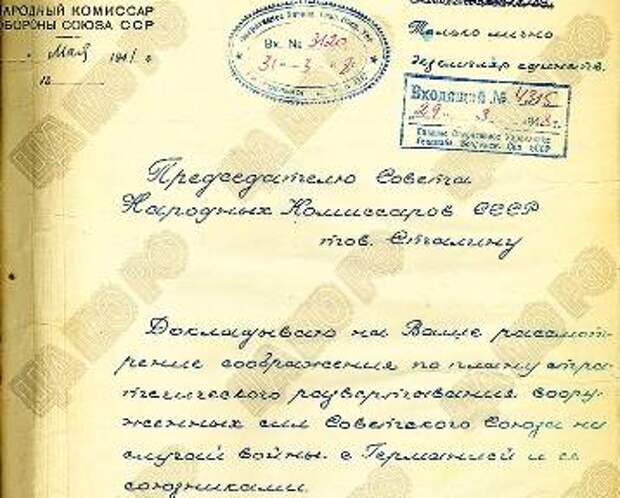 НАРОДНЫЙ КОМИССАР
ОБОРОНЫ СОЮЗА ССР
Мая 1941 г
Только лично
Экземпляр единств.
Вх. № 3120
31 - 3
Входящий № 4315
29 3 1948 г.
Главное Оперативное Управление
Председателю Совета
Народных Комиссаров СССР
тов. Сталину
Докладываю на Ваше рассмот-
рение соображения по плану стра
тегического развертывания воору-
женных сил Советского Союза на
случай войны с Германией и ее
союзниками.